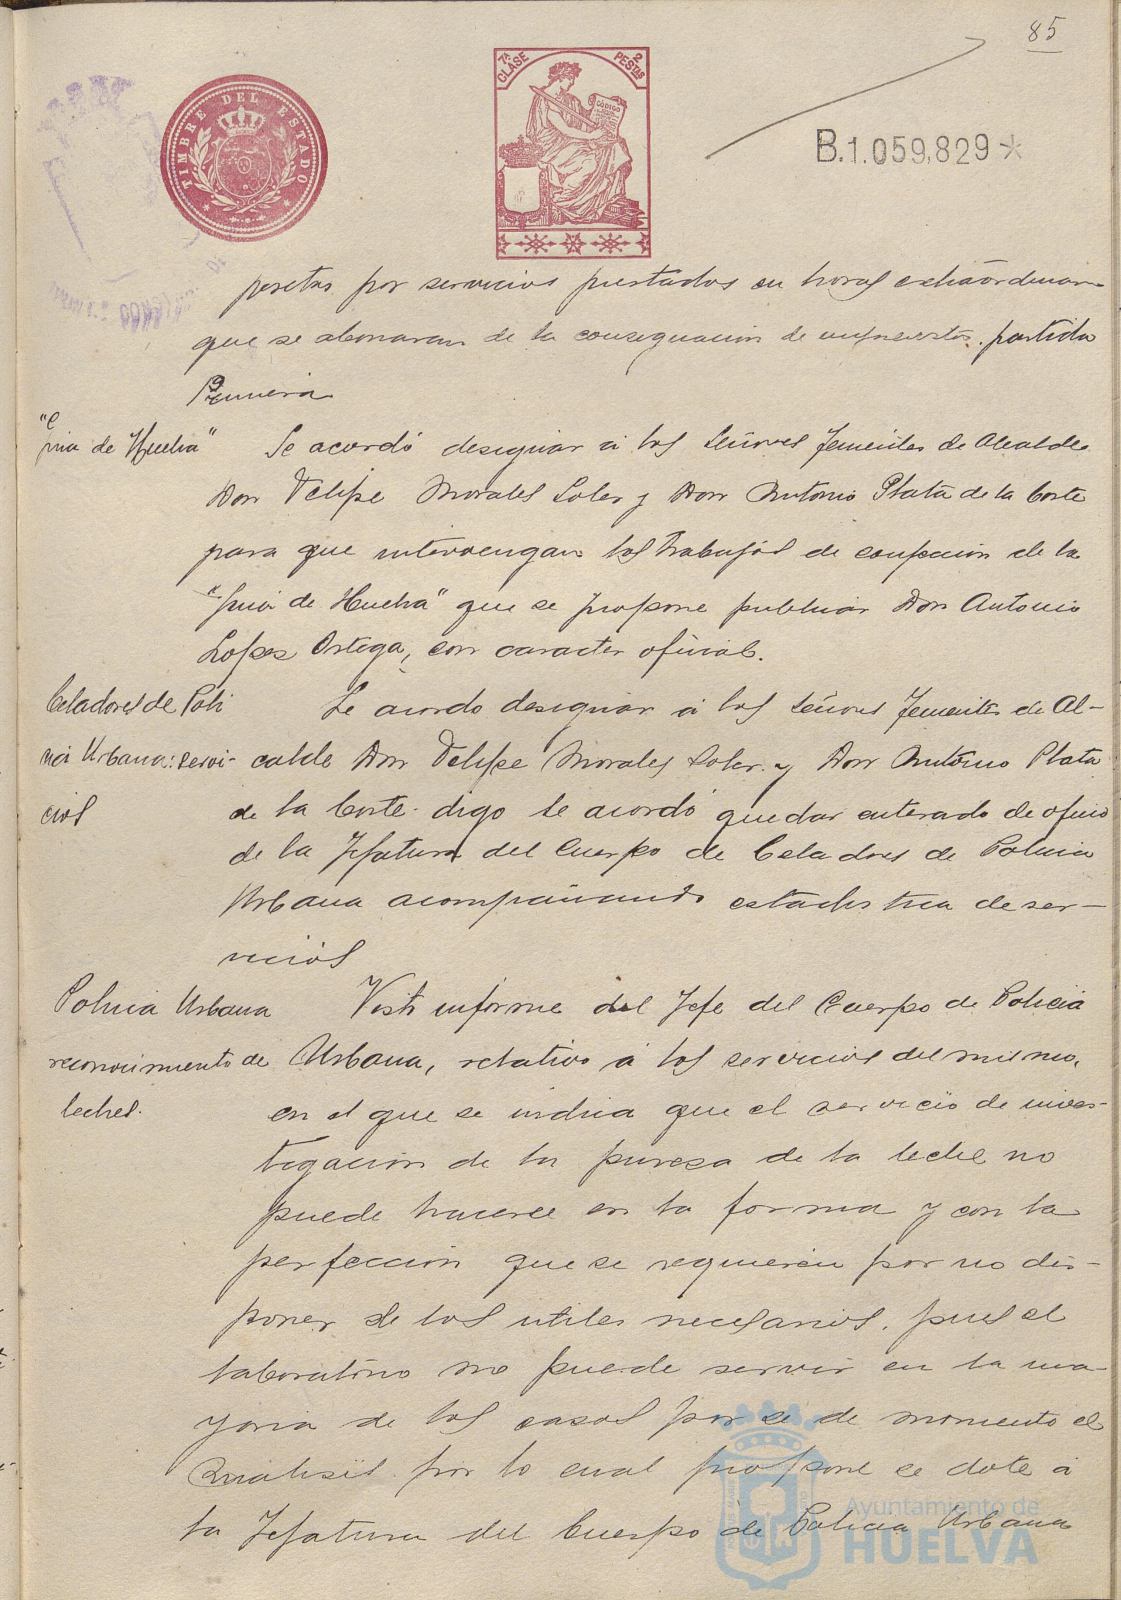 85
TIMBRE DEL ESTADO
7ª CLASE
2 PESTAS
CÓDIGO
B.1.059,829*
pesetas por servicios prestados en horas extraordinarias
que se abonaran de la consignacion de impuestos. partida
Primera
"Guia de Huelva"
Se acordó designar á los Señores Tenientes de Alcalde
Don Felipe Morales Soler y Don Antonio Plata de la Corte
para que intervengan los trabajos de confeccion de la
"Guia de Huelva" que se propone publicar Don Antonio
Lopez Ortega, con caracter oficial.
Celadores de Poli
cia Urbana: servi-
cios
Se acordo designar á los Señores Tenientes de Al-
calde Don Felipe Morales Soler y Don Antonio Plata
de la Corte digo se acordó quedar enterado de oficio
de la Jefatura del Cuerpo de Celadores de Policia
Urbana acompañando estadistica de ser-
vicios
Policia Urbana
reconocimiento de
leches.
Visto informe del Jefe del Cuerpo de Policia
Urbana, relativo á los servicios del mismo,
en el que se indica que el servicio de inves-
tigacion de la pureza de la leche no
puede hacerse en la forma y con la
perfeccion que se requieren por no dis-
poner de los utiles necesarios, pues el
laboratorio no puede servir en la ma-
yoria de los casos por se de momento el
analisis por lo cual propone se dote á
la Jefatura del Cuerpo de Policia Urbana
Ayuntamiento de
HUELVA